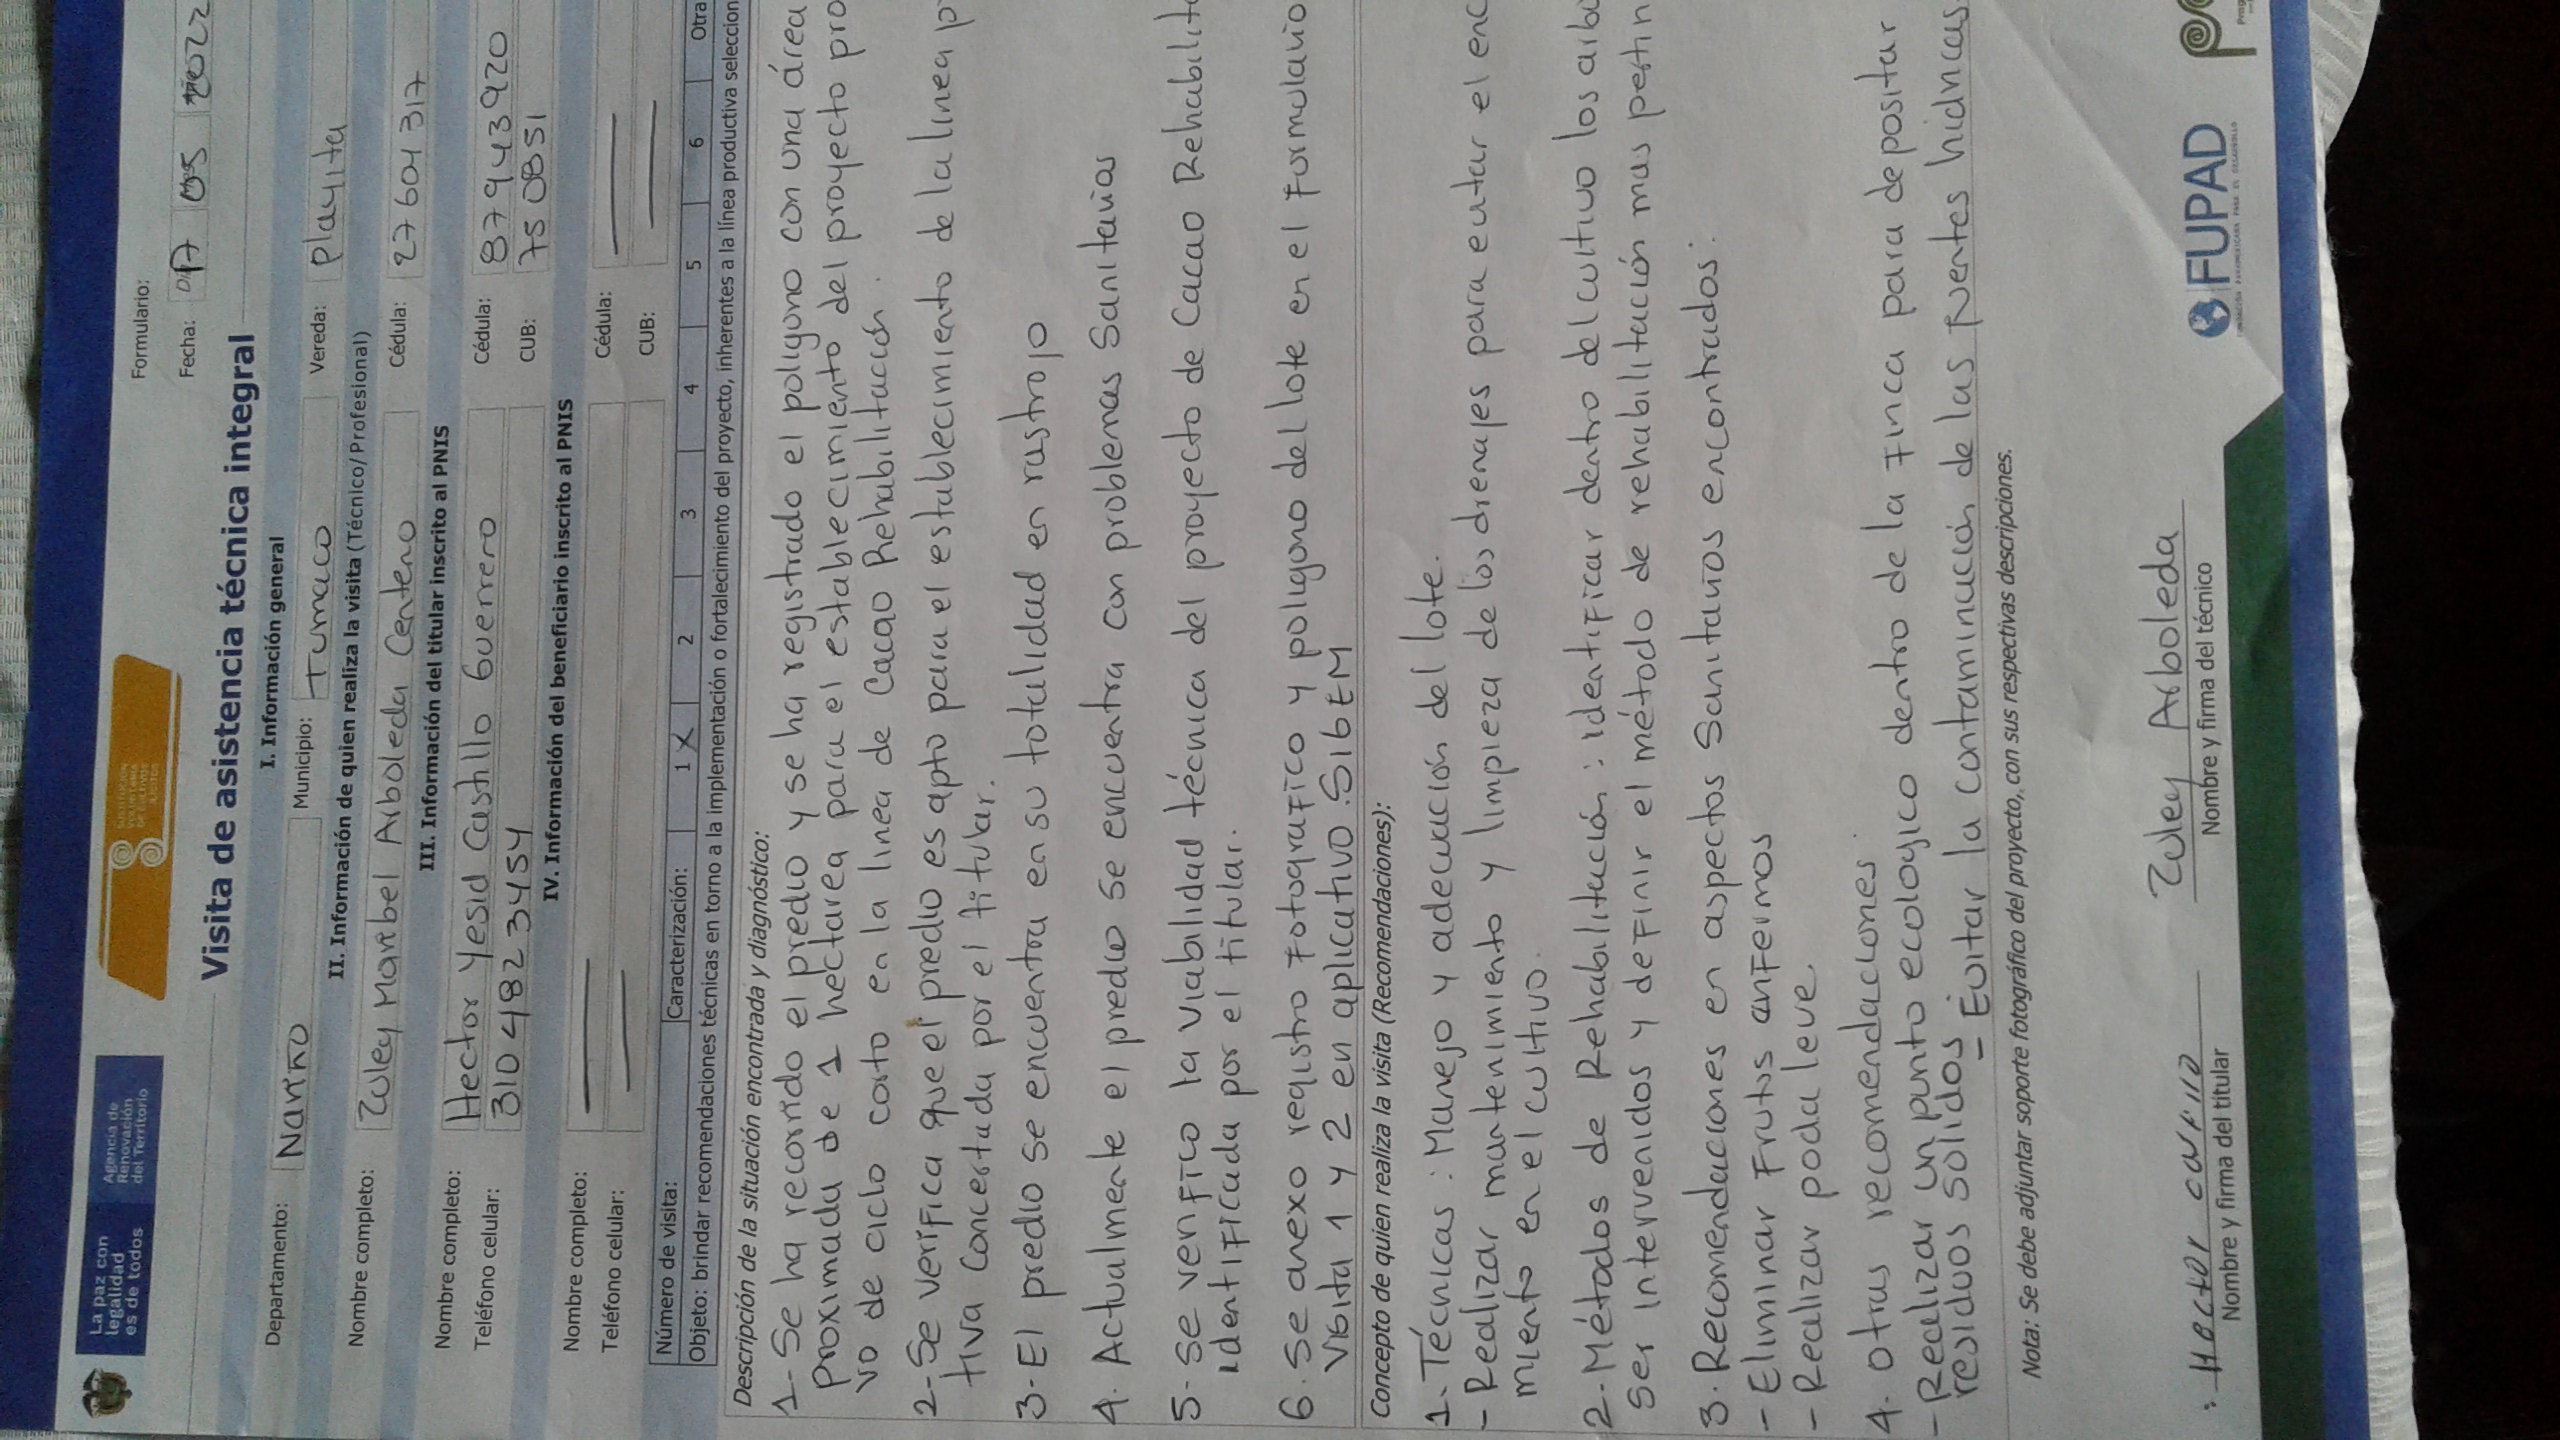 La paz con
legalidad
es de todos
Agencia de
Renovación
del Territorio
SUSTITUCIÓN
VOLUNTARIA
DE CULTIVOS
ILÍCITOS
Formulario:
Visita de asistencia técnica integral
Fecha: 17 05 2022
I. Información general
Departamento: Nariño Municipio: Tumaco Vereda: Playita
II. Información de quien realiza la visita (Técnico/Profesional)
Nombre completo: Zuley Maribel Arboleda Centeno Cédula: 27604317
III. Información del titular inscrito al PNIS
Nombre completo: Hector Yesid Castillo Guerrero Cédula: 87943920
Teléfono celular: 310 482 3454 CUB: 750851
IV. Información del beneficiario inscrito al PNIS
Nombre completo: Cédula:
Teléfono celular: CUB:
Número de visita: Caracterización: 1 X 2 3 4 5 6 Otra
Objeto: brindar recomendaciones técnicas en torno a la implementación o fortalecimiento del proyecto, inherentes a la línea productiva seleccion
Descripción de la situación encontrada y diagnóstico:
1- Se ha recorrido el predio y se ha registrado el poligono con una área
proximada de 1 hectarea para el establecimiento del proyecto pro
vo de ciclo corto en la linea de Cacao Rehabilitación.
2- Se verifica que el predio es apto para el establecimiento de la linea p
tiva Concertada por el titular.
3- El predio se encuentra en su totalidad en rastrojo
4. Actualmente el predio se encuentra con problemas Sanitarios
5- Se verifico la viabilidad técnica del proyecto de Cacao Rehabilit
identificada por el titular.
6. Se anexo registro fotografico y poligono del lote en el formulario
Visita 1 y 2 en aplicativo SibEM
Concepto de quien realiza la visita (Recomendaciones):
1- Técnicas: Manejo y adecuación del lote.
- Realizar mantenimiento y limpieza de los drenajes para evitar el enc
miento en el cultivo.
2- Métodos de Rehabilitación: identificar dentro del cultivo los arbo
ser intervenidos y definir el método de rehabilitación mas pertin
3. Recomendaciones en aspectos Sanitarios encontrados:
- Eliminar Frutos enfermos
- Realizar poda leve.
4. Otras recomendaciones:
- Realizar un punto ecologico dentro de la finca para depositar
residuos solidos - Evitar la contaminación de las fuentes hidricas.
Nota: Se debe adjuntar soporte fotográfico del proyecto, con sus respectivas descripciones.
Hector Castillo
Nombre y firma del titular
Zuley Arboleda
Nombre y firma del técnico
FUPAD
FUNDACIÓN PANAMERICANA PARA EL DESARROLLO